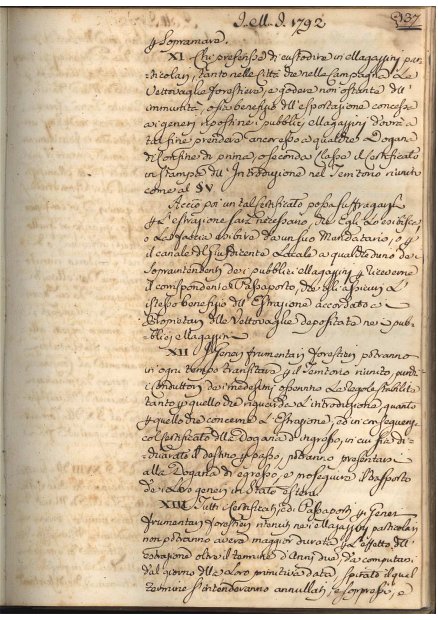 I. M. I. 1792
137
p Sopramare.
XI. Chi pretendesse di custodire in Magazzini par-
ticolari, tanto nelle Città che nella Campagna Le
Vettovaglie forestiere, e godere non ostante dell'
immunità, ossia benefizio dell'esportazione concessa
ai generi depositati ne' pubblici Magazzini dovrà a
tal fine prendere ancor esso a qualche Dogana
di Confine di prima, o seconda Classe il Certificato
in stampa dell'Introduzione nel Territorio riunito
come al § V
Acciò poi un tal Certificato possa suffragarli
p l'estrazione sarà necessario, che Egli Lo esibisca,
o Lo faccia esibire da un suo Mandatario, o p
il canale del Giusdicente Locale a qualcheduno de'
Sopraintendenti dei pubblici Magazzini p riceverne
il corrispondente Passaporto, che gli assicuri L'
istesso benefizio dell'Estrazione accordato a'
Proprietarj delle Vettovaglie depositate nei pub-
blici Magazzini
XII I Generi frumentarj forestieri potranno
in ogni tempo transitare p il Territorio riunito, purchè
i Conduttori dei medesimi osservino Le regole stabilite
tanto p quello che riguarda L'introduzione, quanto
p quello che concerne L'Estrazione, ed in conseguenza
col Certificato della Dogana d'ingresso, in cui sia di-
chiarato il destino p passo, potranno presentarsi
alla Dogana di egresso, e proseguire il trasporto
de' Loro generi in Stato estero.
XIII Tutti i Certificati, e di Passaporti p Generi
frumentarj forestieri ritenuti nei Magazzini particolari
non potranno avere maggior durata p L'effetto dell'
estrazione oltre il termine d'Anni due, da computarsi
dal giorno della Loro primitiva data spirato il qual
termine s'intenderanno annullati, e soppressi, e